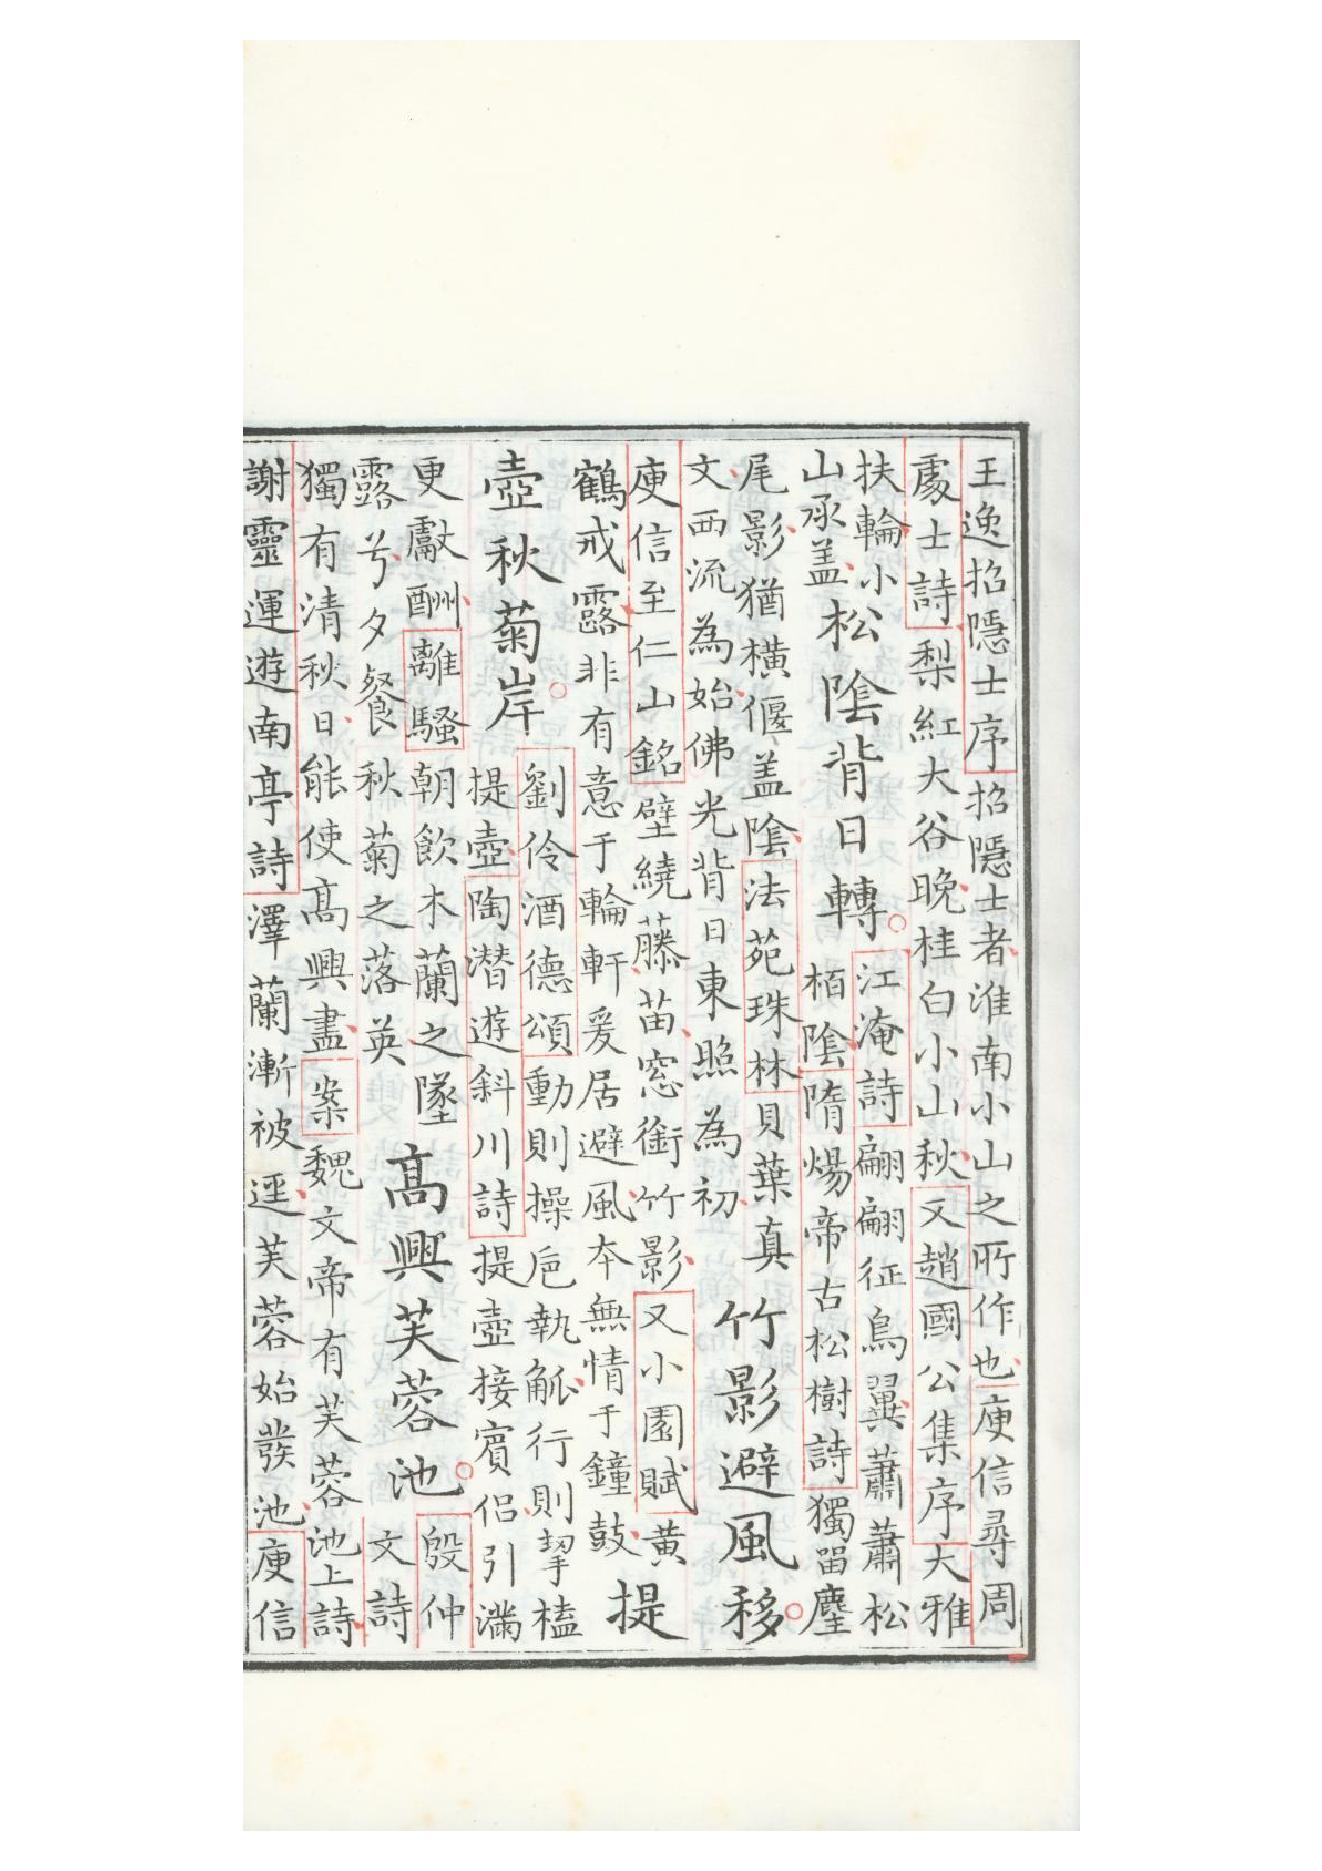 王逸招隱士序招隱士者淮南小山之所作也庾信尋周
處士詩梨紅大谷晚桂白小山秋又趙國公集序大雅
扶輪小
山承盖松陰背日轉江淹詩翩翩征鳥翼蕭蕭松
栢陰隋煬帝古松樹詩獨留塵
尾影猶橫偃盖陰法苑珠林貝葉真
文西流為始佛光背日東照為初竹影避風移
庾信至仁山銘壁繞藤苗窓銜竹影又小園賦黃
鶴戒露非有意于輪軒爰居避風夲無情于鐘鼓提
壺秋菊岸劉伶酒德頌動則操巵執觚行則挈榼
提壺陶潛遊斜川詩提壺接賓侣引滿
更獻酬離騷朝飲木蘭之墜
露兮夕餐秋菊之落英高興芙蓉池殷仲
文詩
獨有清秋日能使高興盡案魏文帝有芙蓉池上詩
謝靈運遊南亭詩澤蘭漸被逕芙蓉始發池庾信